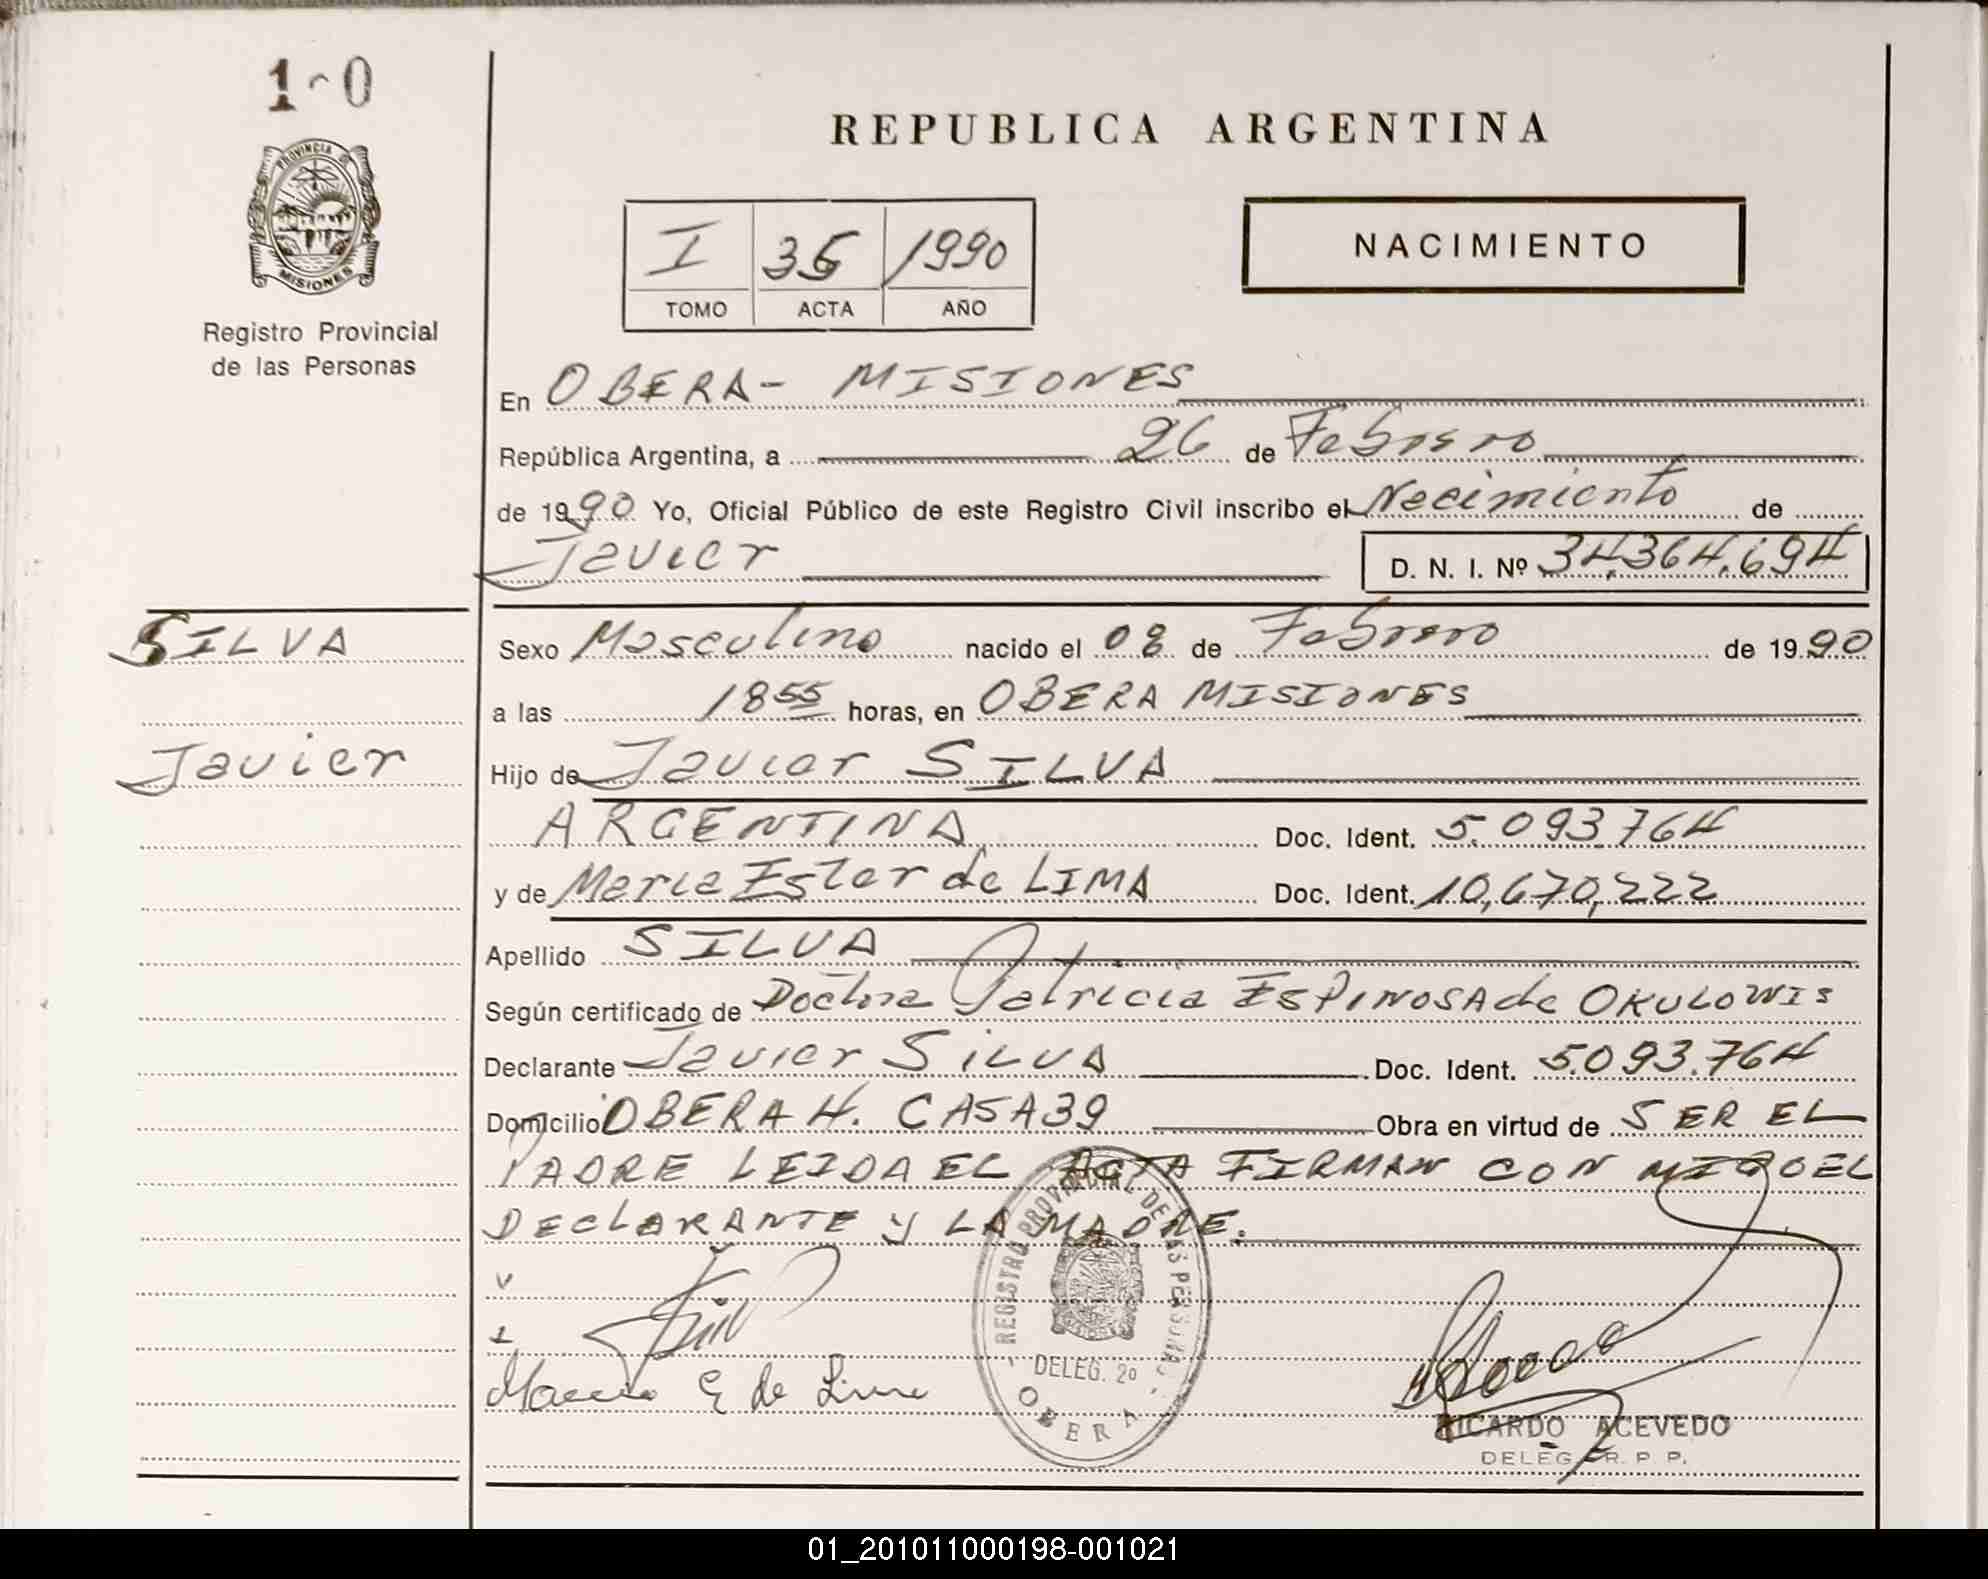 1 0
REPUBLICA ARGENTINA
PROVINCIA DE
MISIONES
Registro Provincial
de las Personas
NACIMIENTO
I 36 1990
TOMO ACTA AÑO
En OBERA- MISIONES
República Argentina, a 26 de Febrero
de 1990 Yo, Oficial Público de este Registro Civil inscribo el Nacimiento de
Javier D. N. I. Nº 34.364.694
SILVA
Javier
Sexo Masculino nacido el 08 de Febrero de 1990
a las 18 55 horas, en OBERA MISIONES
Hijo de Javier SILVA
ARGENTINA Doc. Ident. 5.093.764
y de Maria Ester de LIMA Doc. Ident. 10,670,222
Apellido SILVA
Según certificado de Doctora Patricia ESPINOSA de OKULOWIS
Declarante Javier SILVA Doc. Ident. 5.093.764
Domicilio OBERA H. CASA 39 Obra en virtud de SER EL
PADRE LEIDA EL ACTA FIRMAN CON MIGO EL
DECLARANTE Y LA MADRE.
Maria E de Lima
- REGISTRO PROVINCIAL DE LAS PERSONAS -
DELEG. 2º
OBERA
RICARDO ACEVEDO
DELEG. R. P. P.
01_201011000198-001021